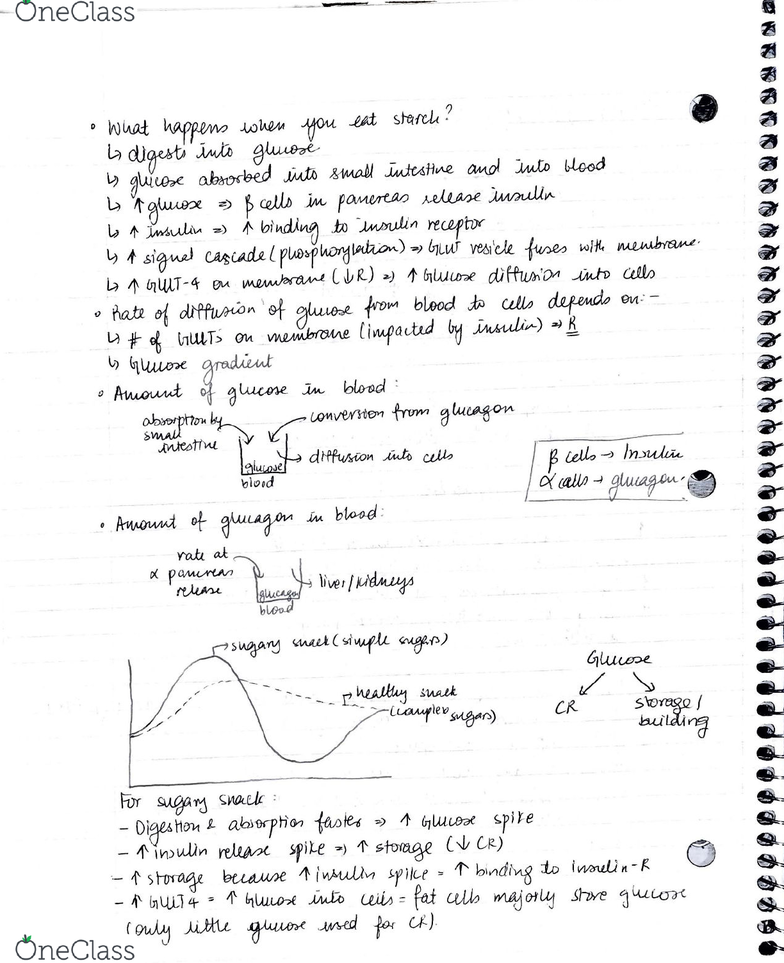 OneClass
• What happens when you eat starch?
↳ digests into glucose
↳ glucose absorbed into small intestine and into blood
↳ ↑ glucose ⇒ β cells in pancreas release insulin
↳ ↑ insulin ⇒ ↑ binding to insulin receptor
↳ ↑ signal cascade (phosphorylation) ⇒ GLUT vesicle fuses with membrane.
↳ ↑ GLUT-4 on membrane (↓R) ⇒ ↑ Glucose diffusion into cells
• Rate of diffusion of glucose from blood to cells depends on:-
↳ # of GLUTs on membrane (impacted by insulin) ⇒ R
↳ Glucose gradient
• Amount of glucose in blood:
absorption by small intestine
conversion from glucagon
glucose
→ diffusion into cells
blood
β cells → Insulin
α cells → glucagon.
• Amount of glucagon in blood:
rate at
α pancreas
release
glucagon
→ liver/kidneys
blood
sugary snack (simple sugars)
healthy snack
(complex sugars)
Glucose
CR
storage/
building
For sugary snack:
- Digestion & absorption faster ⇒ ↑ Glucose spike
- ↑ insulin release spike ⇒ ↑ storage (↓ CR)
- ↑ storage because ↑ insulin spike = ↑ binding to insulin-R
- ↑ GLUT4 = ↑ Glucose into cells = fat cells majorly store glucose
(only little glucose used for CR).
OneClass